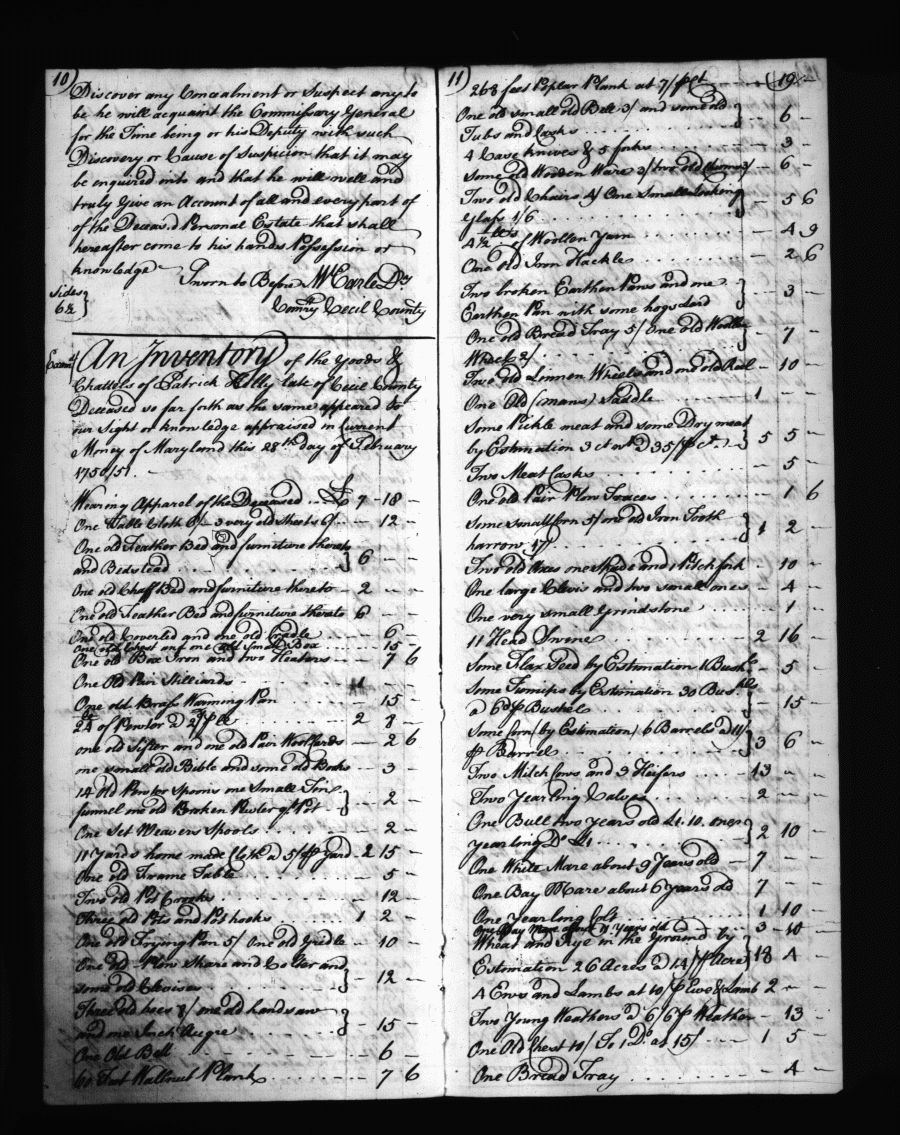 10)
Discover any Concealment or Suspect any to
be he will acquaint the Commissary General
for the Time being or his Deputy with such
Discovery or Cause of Suspicion that it may
be enquired into and that he will well and
truly Give an Account of all and every part of
of the Deceas.d Personal Estate that shall
hereafter come to his hands Possession or
knowledge Sworn to Before Earle Dy
Sides 6½ } Cecil County
Exam.d An Inventory of the Goods &
Chattels of Patrick late of Cecil County
Deceased so far forth as the same appeared to
our sight or knowledge appraised in Current
Money of Maryland this 28th day of February
1750/51. —
Wearing Apparel of the Deceased .. £ 7 - 18 -
One Table Cloth 3 very old Sheets - 12 -
One old Feather Bed and furniture thereto
and Bedstead } 6 - -
One old Chaff Bed and furniture thereto - 2 - -
One old Feather Bed and furniture thereto 6 - -
One old Coverled and one old Cradle - 6 -
One old Chest and one old small Box - 15 -
One old Box Iron and two Heaters - 7 6
One Old Pair Stilliards
One old Brass Warming Pan - 15 -
of Pewter 2
one old Sifter and one old Pair Woolcards - 2 6
one small old Bible and some old Books - 3 -
14 old Pewter Spoons one Small Tin
funnel one old Broken Pewter qt Pot } - 2 -
One Set Weavers Spools - 2 -
11 Yards home made Cloth a 5/ ⅌ Yard - 2 15 -
One old Frame Table - 5 -
Two old Pot Crooks - 12 -
Three old Pots and Pot hooks 1 2 -
One old Frying Pan 5/ One old Gridle - 10 -
One old Plow Share and Colter and
some old Clevises } - 12 -
Three old hoes one old handsaw
and one Inch Augre } - 15 -
One Old Bell - 6 -
60 Foot Wallnut Plank - 7 6
11)
268 feet Poplar Plank at 7/ ⅌ Ct - 19 -
One old small old Bell 3/ and some old
Tubs and Casks } - 6 -
4 Case knives & 5 forks - 3 -
Some old Wooden Ware 3/ - 6 -
Two old Chairs 4/ One Small looking
Glass 1/6 } - 5 6
4½ lbs of Woollen Yarn - 4 9
One old Iron Hackle - 2 6
Two broken Earthen Pans and one
Earthen Pan with some hogs Lard } - 3 -
One old Bread Tray 5/ One old Woollen
Wheel 2/ - 7 -
Two old Linnen Wheels and one old Reel - 10 -
One Old (mans) Saddle - 1 -
Some Pickle meat and some Dry meat
by Estimation 3 ct wt a 35/ ⅌ Ct. } 5 5 -
Two Meat Casks - 5 -
One old Pair Plow Traces - 1 6
Some small Iron 5/ one old Iron Tooth
harrow 17/ } 1 2 -
Two old Axes one Spade and 1 Pitch fork - 10 -
One large Clevis and two small ones - 4 -
One very small Grindstone - 1 -
11 Head Swine 2 16 -
Some Flax Seed by Estimation 1 Bush.l - 5 -
Some Turnips by Estimation 30 Bus.hls
a 6d ⅌ Bushel } - 15 -
Some Corn (by Estimation) 6 Barrels a 11/
⅌ Barrel } 3 6 -
Two Milch Cows and 3 Heifers - 13 - -
Two Yearling Calves 2 - -
One Bull two years old £1.10. one
yearling Do £1 } 2 10 -
One White Mare about 9 Years old - 7 - -
One Bay Mare about 6 Years old 7 - -
One Yearling Colt 1 10 -
One Bay Mare about 11 Years old - 3 - 10 -
Wheat and Rye in the Ground by
Estimation 26 Acres a 14/ ⅌ Acre } 18 4 -
4 Ews and Lambs at 10/ ⅌ Ewe & Lamb 2 - -
Two Young Weathers a 6/6 ⅌ Weather - 13 -
One Old Chest 10/ To 1 Do at 15/ - 1 5
One Bread Tray - 4 -